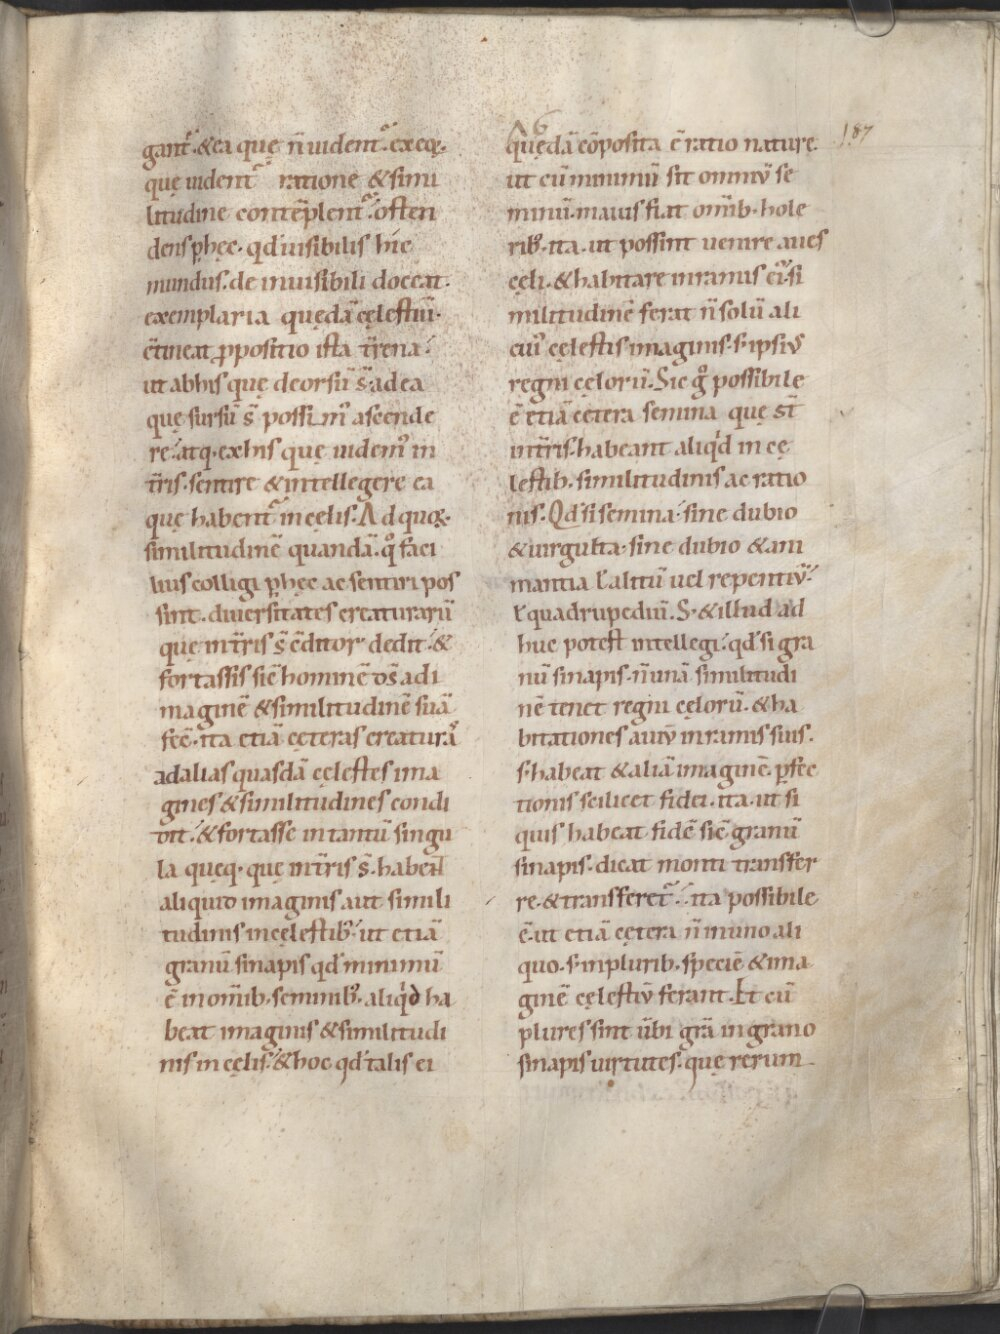 gant᷑·&ea que̜ n̄ uident᷑·ex eoꝝ·
que̜ uident᷑ ratione &simi
litudine contēplent᷑·osten
dens ꝑhe̜c· qd' uisibilis hic
mundus· de inuisibili doceat·
exemplaria que̜dā ce̜lestiū·
c̄tineat ꝓpositio ista t̄rena·
ut abhis que̜ deorsū s̄· ad ea
que̜ sursū s̄ possimꝰ ascende
re· atq· exhis que̜ uidemꝰ in
t̄ris· sentire &intellegere ea
que̜ habent᷑ in ce̜lis· Ad quoꝝ·
similitudinē quandā· qͦ faci
lius colligi ꝑ he̜c ac sentiri pos
sint· diuersitates creaturarū
que̜ in t̄ris s̄ c̄ditor dedit· &
fortassis sic̄ hominē d̄s ad i
maginē &similitudinē suā
fec̄· ita etiā ce̜teras creaturaˢ
ad alias quasdā ce̜lestes ima
gines &similitudines condi
dit· &fortasse in tantū singu
la que̜q· que̜ in t̄ris s̄· habent
aliquid imaginis aut simili
tudinis in ce̜lestibꝰ· ut etiā
granū sinapis qd' minimū
ē in om̄ib· seminibꝰ· aliq'd ha
beat imaginis &similitudi
nis in ce̜lis· &hoc qd' talis ei
187
que̜dā cōposita ē ratio nature̜·
ut cū minimū sit omniū se
minū· maius fiat om̄ib· hole
ribꝰ· ita· ut possint uenire aues
ce̜li· &habitare in ramis eiꝰ· si
militudinē ferat n̄ solū ali
cuiꝰ ce̜lestis imaginis· s· ipsiꝰ
regni ce̜lorū· Sic gͦ possibile
ē etiā ce̜tera semina que̜ st̄
in t̄ris· habeant aliq'd in ce̜
lestib· similitudinis ac ratio
nis· Qd' si semina· sine dubio
&uirgulta· sine dubio &ani
mantia ł alitū uel repentiū·
ł quadrupediū· S· &illud ad
huc potest intellegi· qd' si gra
nū sinapis· n̄ unā similitudi
nē tenet regni ce̜lorū· &ha
bitationes auiū in ramis suis·
s· habeat &aliā imaginē· ꝑfec
tionis scilicet fidei· ita· ut si
quis habeat fidē sic̄ granū
sinapis· dicat monti transfer
re·&transferet᷑· ita possibile
ē· ut etiā ce̜tera n̄ in uno ali
quo· s· in plurib· speciē &ima
ginē ce̜lestiū ferant· Et cū
plures sint ūbi gr̄a in grano
sinapis uirtutes· que̜ rerum